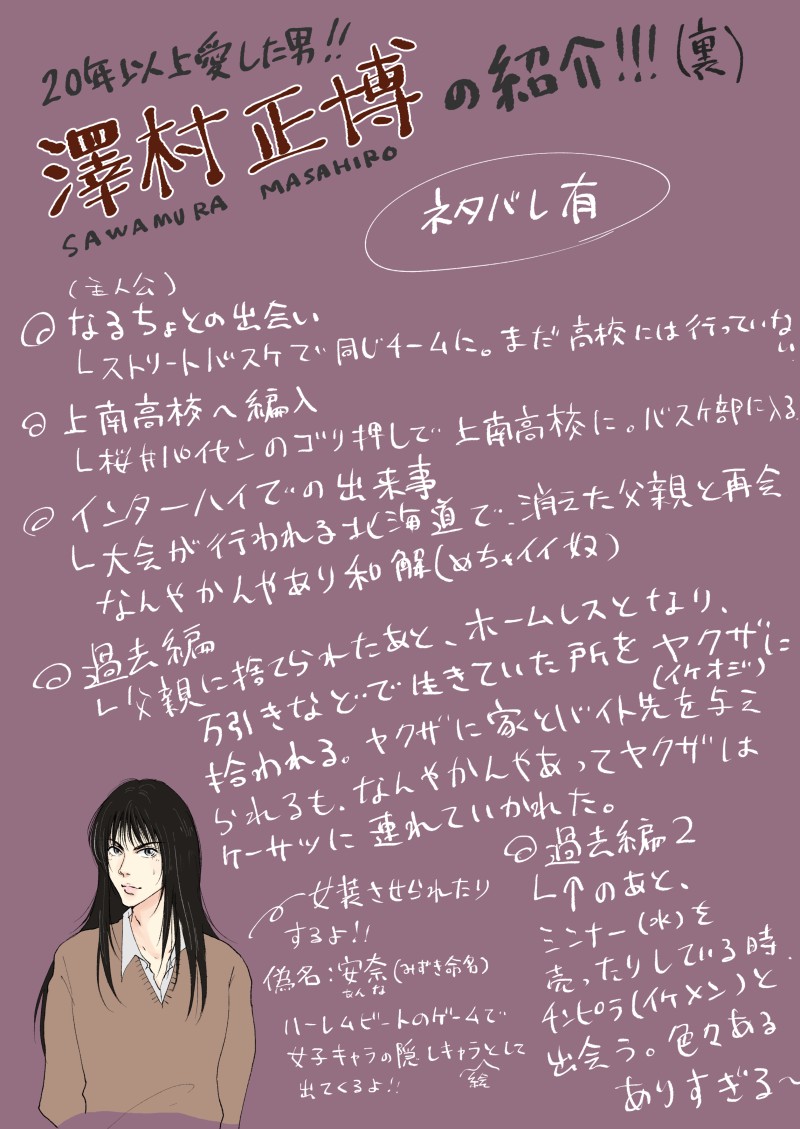 20年以上愛した男!!
澤村正博の紹介!!!(裏)
SAWAMURA MASAHIRO
ネタバレ有
(主人公)
◎なるちょとの出会い
└ストリートバスケで同じチームに。まだ高校には行っていない
◎上南高校へ編入
└桜井パイセンのゴリ押しで上南高校に。バスケ部に入る
◎インターハイでの出来事
└大会が行われる北海道で、消えた父親と再会
なんやかんやあり和解(めちゃイイ奴)
◎過去編
└父親に捨てられたあと、ホームレスとなり、
万引きなどで生きていた所をヤクザに
(イケオジ)
拾われる。ヤクザに家とバイト先を与え
られるも、なんやかんやあってヤクザは
ケーサツに連れていかれた。
女装させられたり
するよ!!
偽名:安奈(みずき命名)
あんな
ハーレムビートのゲームで
女子キャラの隠しキャラとして
(絵)
出てくるよ!!
◎過去編2
└↑のあと、
ミンナー(水)を
売ったりしている時、
チンピラ(イケメン)と
出会う。色々ある
ありすぎる〜